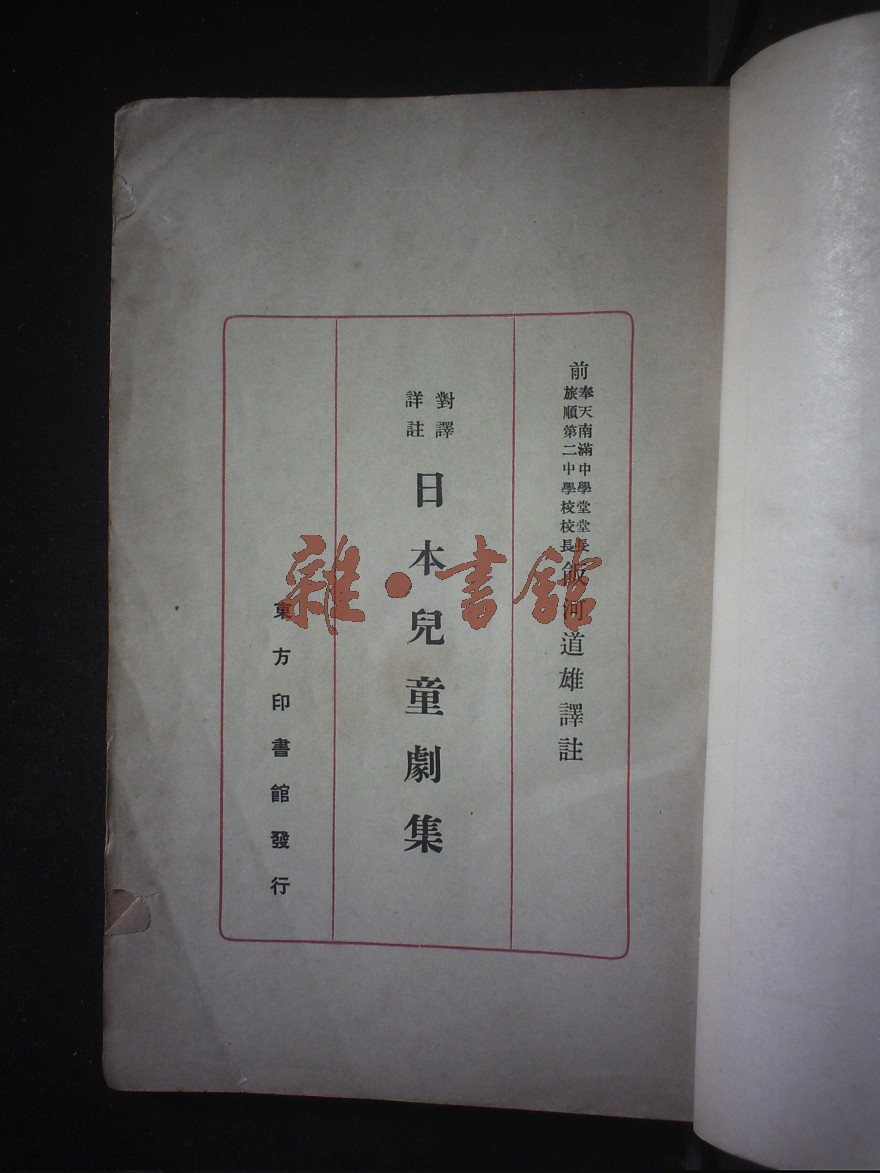 前奉天南滿中學堂堂長
旅順第二中學校校長飯河道雄譯註
對譯
詳註
日本兒童劇集
東方印書館發行
雜·書館